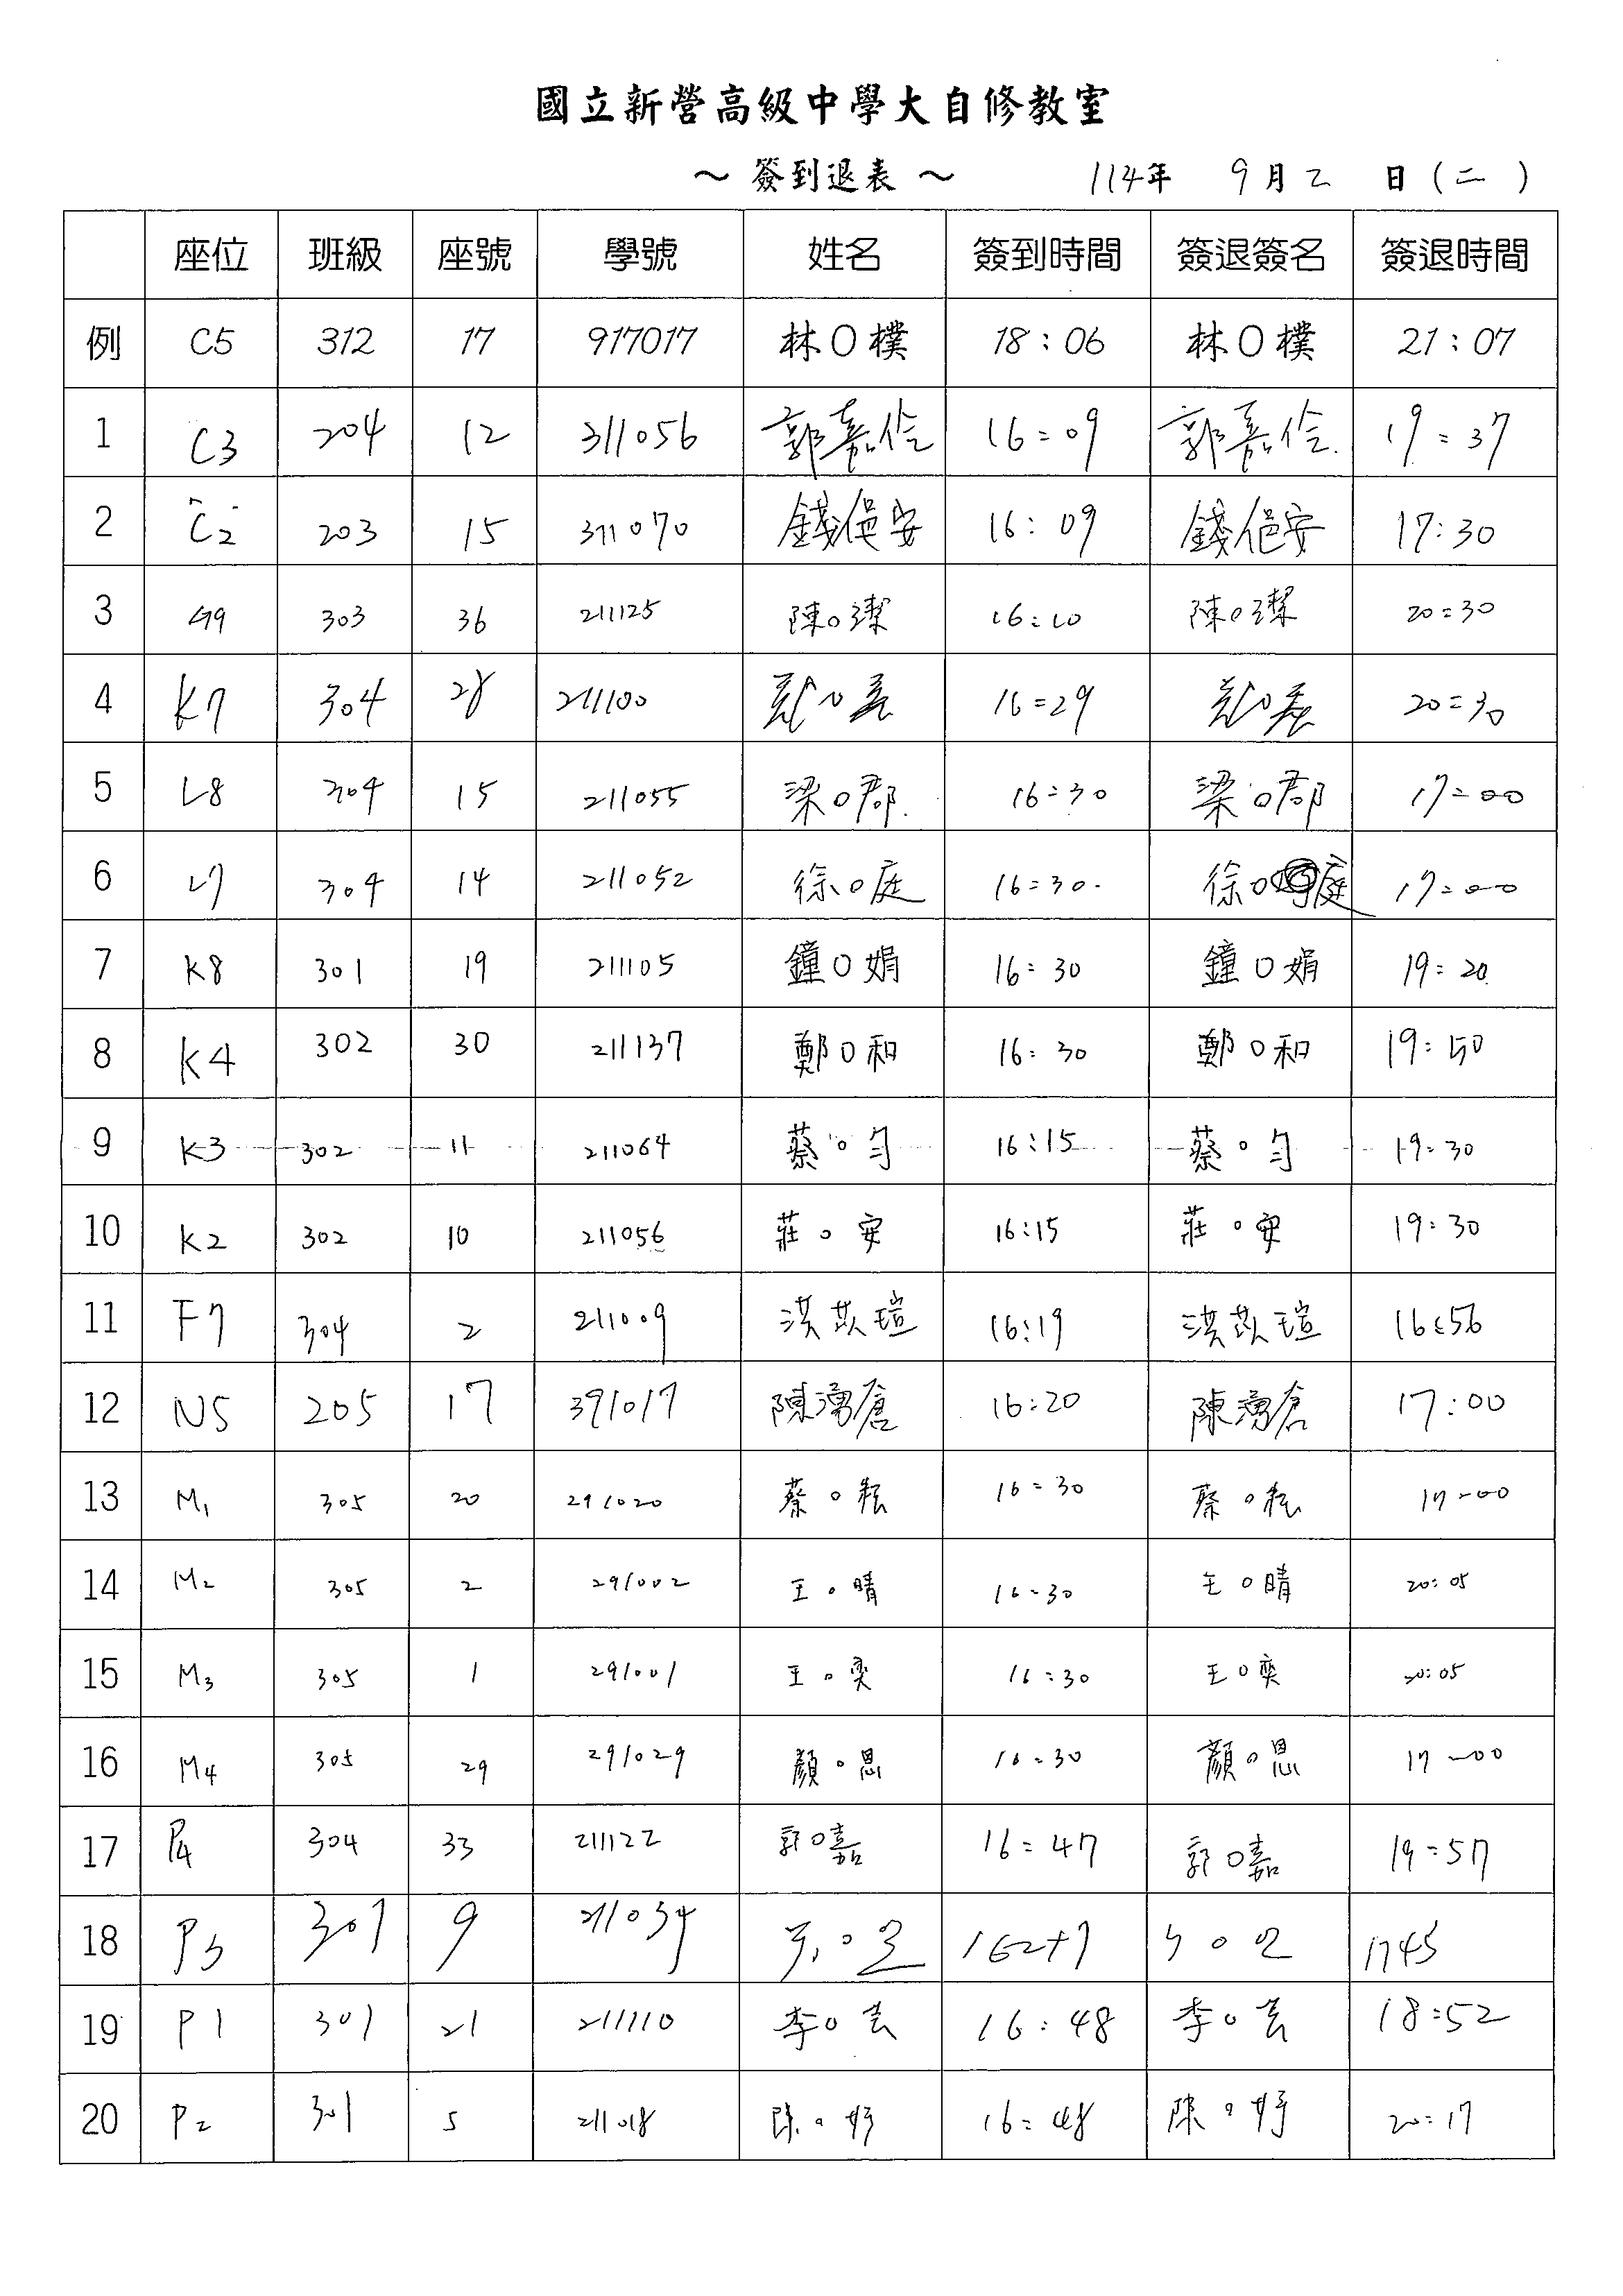 國立新營高級中學大自修教室
～ 簽到退表 ～ 114年 9月2 日(二)
座位 班級 座號 學號 姓名 簽到時間 簽退簽名 簽退時間
例 C5 312 17 917017 林O樸 18:06 林O樸 21:07
1 C3 204 12 311056 郭嘉伶 16:09 郭嘉伶 19:37
2 C2 203 15 311070 錢俋安 16:09 錢俋安 17:30
3 G9 303 36 211125 陳O潔 16:10 陳O潔 20:30
4 K7 304 28 211100 16:29 20:30
5 L8 304 15 211055 梁O郡 16:30 梁O郡 17:00
6 L7 304 14 211052 徐O庭 16:30 徐O庭 17:00
7 K8 301 19 211105 鐘O娟 16:30 鐘O娟 19:20
8 K4 302 30 211137 鄭O和 16:30 鄭O和 19:50
9 K3 302 11 211064 蔡O勻 16:15 蔡O勻 19:30
10 K2 302 10 211056 莊O安 16:15 莊O安 19:30
11 F7 304 2 211009 洪苡瑄 16:19 洪苡瑄 16:56
12 N5 205 17 391017 陳湧倉 16:20 陳湧倉 17:00
13 M1 305 20 291020 蔡O耘 16:30 蔡O耘 17:00
14 M2 305 2 291002 王O晴 16:30 王O晴 20:05
15 M3 305 1 291001 王O奕 16:30 王O奕 20:05
16 M4 305 29 291029 顏O恩 16:30 顏O恩 17:00
17 P4 304 33 211122 郭O嘉 16:47 郭O嘉 19:57
18 P3 301 9 211034 1745
19 P1 301 21 211110 李O芸 16:48 李O芸 18:52
20 P2 301 5 211018 陳O妤 16:48 陳O妤 20:17